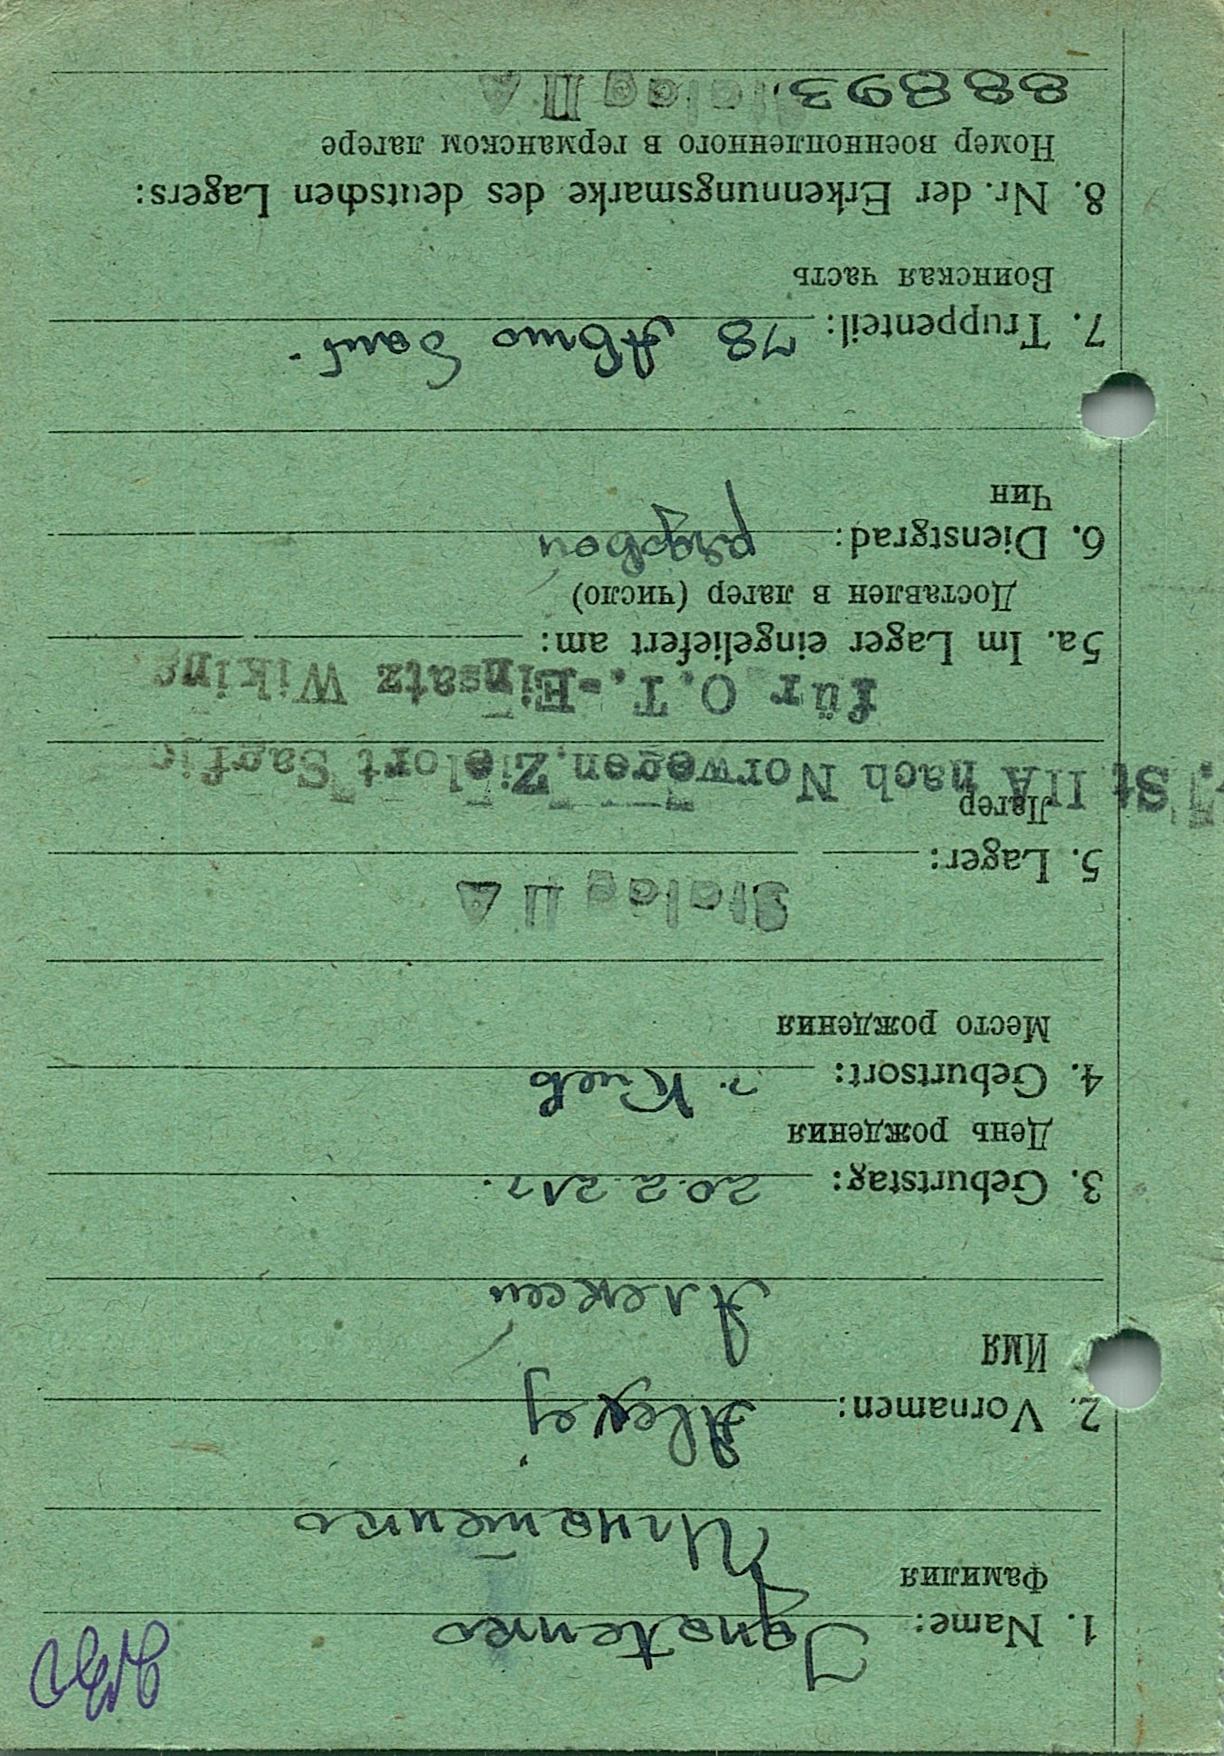 1. Name: Ignatenko
Фамилия
Игнатенко
2. Vornamen: Alexej
Имя
Алексей
3. Geburtstag: 20.2.21 г.
День рождения
4. Geburtsort: г. Киев
Место рождения
Stalag II A
5. Lager:
Лагер
St IIA nach Norwegen. Zielort Sagfjo
für O.T.-Einsatz Wiking
5a. Im Lager eingeliefert am:
Доставлен в лагер (число)
6. Dienstgrad: рядовой
Чин
7. Truppenteil: 78 Авто Бат.
Воинская часть
8. Nr. der Erkennungsmarke des deutschen Lagers:
Номер военнопленного в германском лагере
88893. Stalag II A